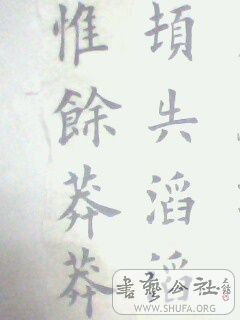 惟餘莽莽
頓失滔滔
書藝公社
WWW.SHUFA.ORG